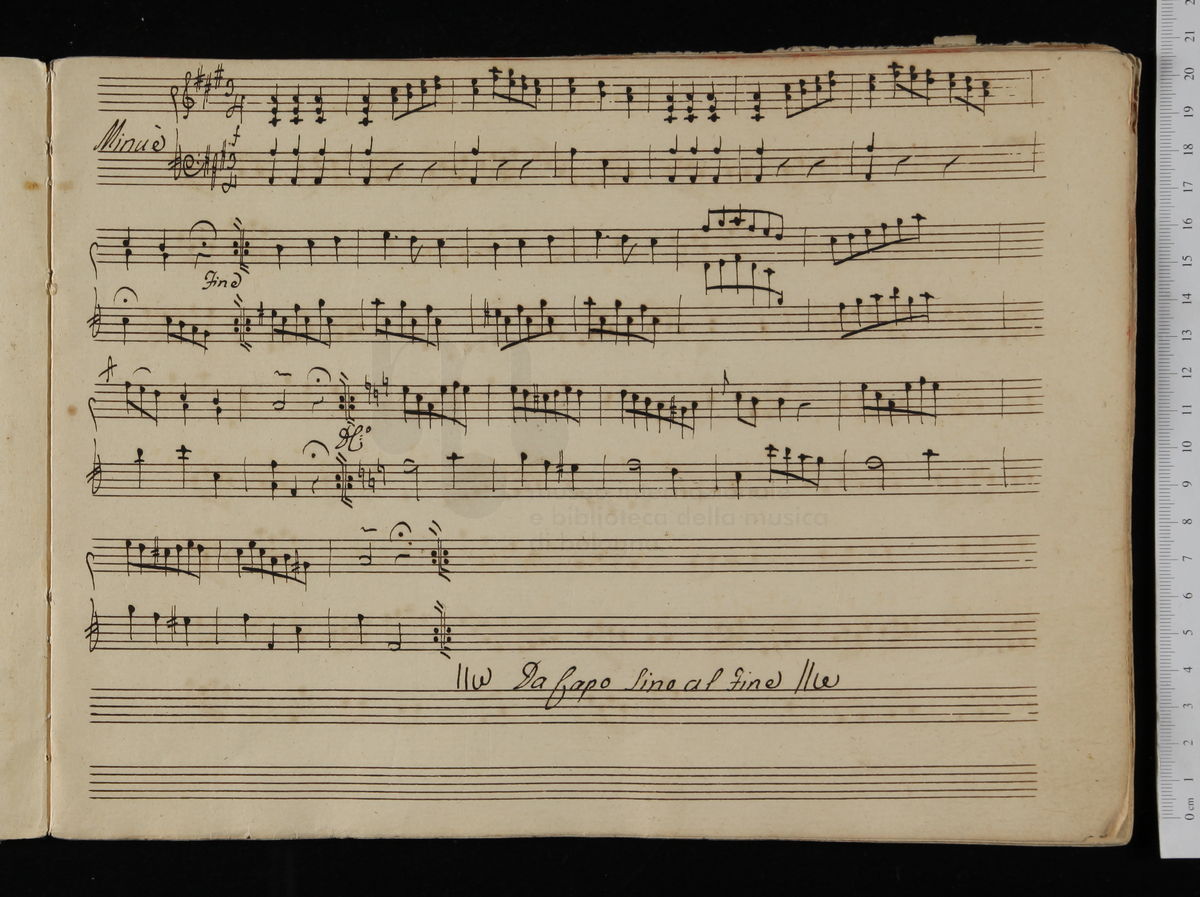 Minuè
f
Fine
museo internazionale
e biblioteca della musica
di bologna
Da Capo Sino al Fine
0 cm 1 2 3 4 5 6 7 8 9 10 11 12 13 14 15 16 17 18 19 20 21